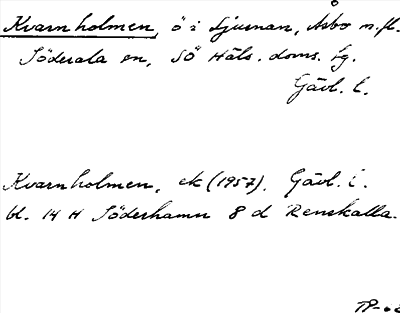 Kvarnholmen, ö i Ljusnan, Åsbo m.fl.
Söderala sn, SÖ Häls. doms. tg.
Gävl. l.
Kvarnholmen, ek (1957), Gävl. l.
bl. 14 H Söderhamn 8 d Renskalla.